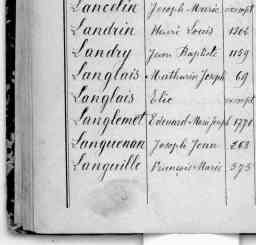 Lancelin Joseph Marie exempt
Landrin Henri Louis 1306
Landry Jean Baptiste 1159
Langlais Mathurin Joseph 69
Langlais Elie exempt
Langlemet Edouard Marie Joseph 1770
Languenan Joseph Jean 263
Languille François Marie 575